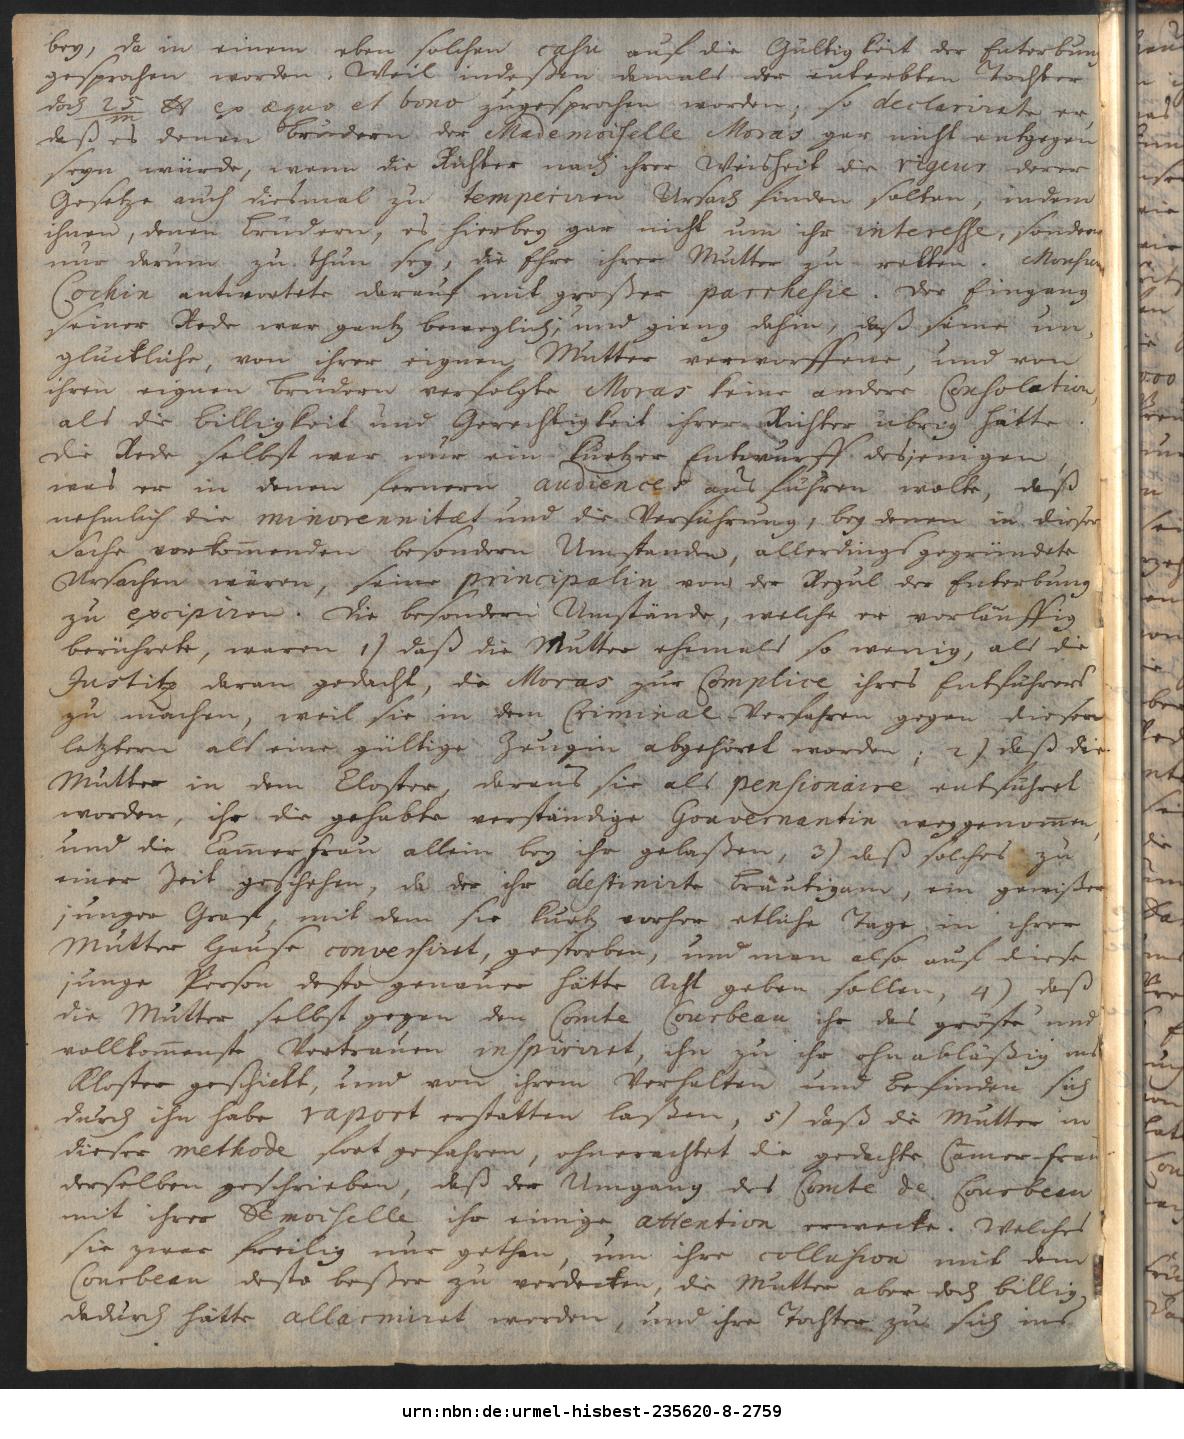 bey, da in einem eben solchen casu auf die Gültigkeit der Enterbung
gesprochen worden. Weil indeßen damals der enterbten Tochter
doch 25/m ex æquo et bono zugesprochen worden, so declarirete er,
daß es denen Brüdern der Mademoiselle Moras gar nicht entgegen
seyn würde, wenn die Richter nach ihrer Weisheit die rigeur derer
Gesetze auch diesmal zu temperiren Ursach finden solten, indem
ihnen, denen Brüdern, es hierbey gar nicht um ihr interesse, sondern
nur darum zu thun sey, die Ehre ihrer Mutter zu retten. Monsieur
Cochin antwortete darauf mit großer parrhesie. Der Eingang
seiner Rede war gantz beweglich, und gieng dahin, daß seine un-
glückliche, von ihrer eignen Mutter verworffene, und von
ihren eignen Brüdern verfolgte Moras keine andere Consolation,
als die Billigkeit und Gerechtigkeit ihrer Richter übrig hätte.
Die Rede selbst war nur ein kurtzer Entwurff desjenigen,
was er in denen fernern audiences ausführen wolte, daß
nehmlich die minorennitæt und die Verführung, bey denen in dieser
Sache vorkom̅enden besondern Umständen, allerdings gegründete
Ursachen wären, seine principalin von der Regul der Enterbung
zu excipiren. Die besondern Umstände, welche er vorläuffig
berührete, waren 1) daß die Mutter ehemals so wenig, als die
Justitz daran gedacht, die Moras zur Complice ihres Entführers
zu machen, weil sie in dem Criminal-Verfahren gegen diesen
letztern als eine gültige Zeugin abgehöret worden; 2) daß die
Mutter in dem Closter, daraus sie als pensionaire entführet
worden, ihr die gehabte verständige Gouvernantin weggenom̅en,
und die Cam̅erfrau allein bey ihr gelaßen, 3) daß solches zu
einer Zeit geschehen, da der ihr destinirte Bräutigam, ein gewißer
junger Graf, mit dem sie kurtz vorher etliche Tage in ihrer
Mutter Hause conversiret, gestorben, und man also auf diese
junge Person desto genauer hätte Acht geben sollen, 4) daß
die Mutter selbst gegen den Comte Courbeau ihr das gröste und
vollkom̅enste Vertrauen inspiriret, ihn zu ihr ohnabläßig ins
Kloster geschickt, und von ihrem Verhalten und Befinden sich
durch ihn habe raport erstatten laßen, 5) daß die Mutter in
dieser methode fortgefahren, ohnerachtet die gedachte Cam̅er-frau
derselben geschrieben, daß der Umgang des Comte de Courbeau
mit ihrer Demoiselle ihr einige attention erwecke. Welches
sie zwar freilig nur gethan, um ihre collusion mit dem
Courbeau desto beßer zu verdecken, die Mutter aber doch billig
dadurch hätte allarmiret werden, und ihre Tochter zu sich ins
urn:nbn:de:urmel-hisbest-235620-8-2759